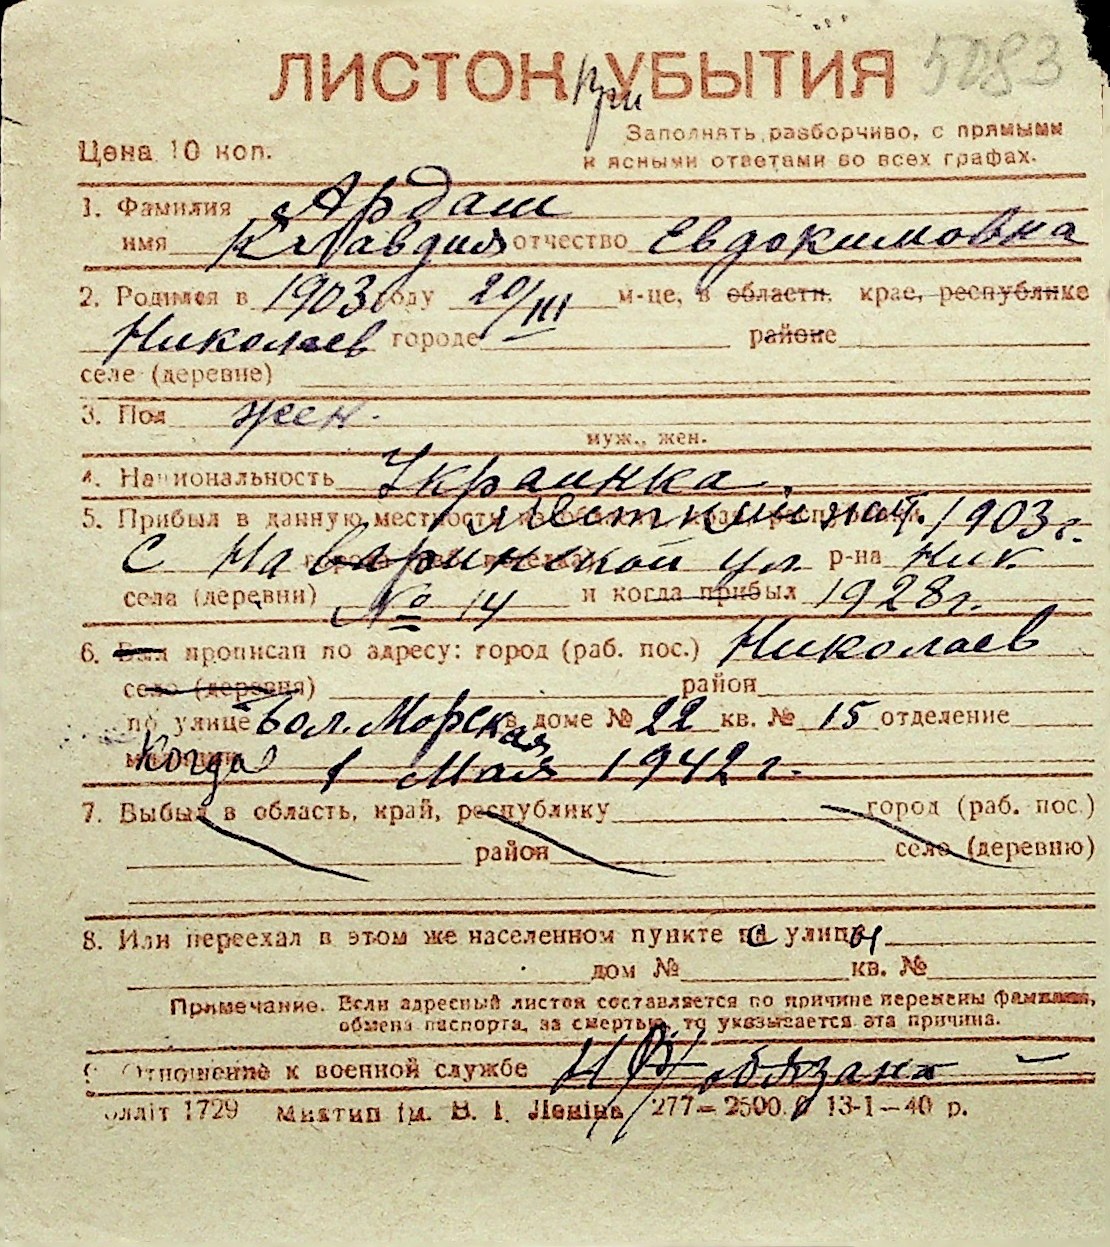 5283
ЛИСТОК При УБЫТИЯ
Цена 10 коп.
Заполнять разборчиво, с прямыми
и ясными ответами во всех графах.
1. Фамилия Ардаш
имя Клавдия отчество Евдокимовна
2. Родился в 1903 году 20/III м-це, в области, крае, республике
Николаев городе районе
селе (деревне)
3. Пол жен.
муж., жен.
4. Национальность Украинка.
5. Прибыл в данную местность 1903 г.
С Наваринской ул р-на Ник
села (деревни) № 14 и когда прибыл 1928 г.
6. Был прописан по адресу: город (раб. пос.) Николаев
село (деревня) район
по улице Бол. Морская в доме № 22 кв. № 15 отделение
Когда 1 Мая 1942 г.
7. Выбыл в область, край, республику город (раб. пос.)
район село (деревню)
8. Или переехал в этом же населенном пункте с улицы
дом № кв. №
Примечание. Если адресный листок составляется по причине перемены фамилии,
обмена паспорта, за смертью, то указывается эта причина.
9. Отношение к военной службе обязана –
олліт 1729 Миктип ім. В. І. Леніна 277–2500 13-1–40 р.